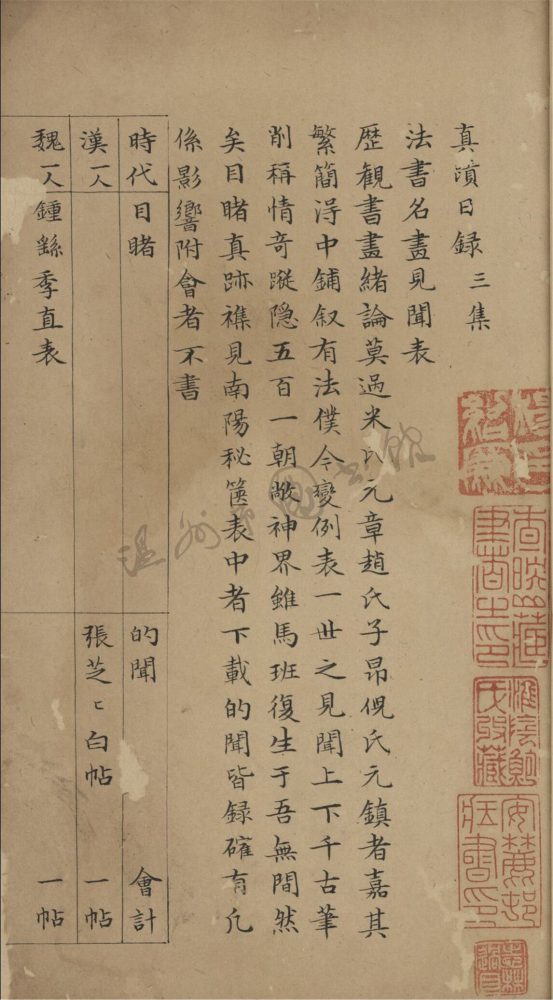 真蹟日録 三集
法書名畫見聞表
歴觀書畫緒論莫過米氏元章趙氏子昂倪氏元鎮者嘉其
繁簡淂中鋪叙有法僕今變例表一世之見聞上下千古筆
削稱情奇蹤隐五百一朝敞神界雖馬班復生于吾無間然
矣目睹真跡襍見南陽秘篋表中者下載的聞皆録確有凢
係影響附會者不書
時代 目睹 的聞 會計
漢一人 張芝〻白帖 一帖
魏一人 鍾繇季直表 一帖